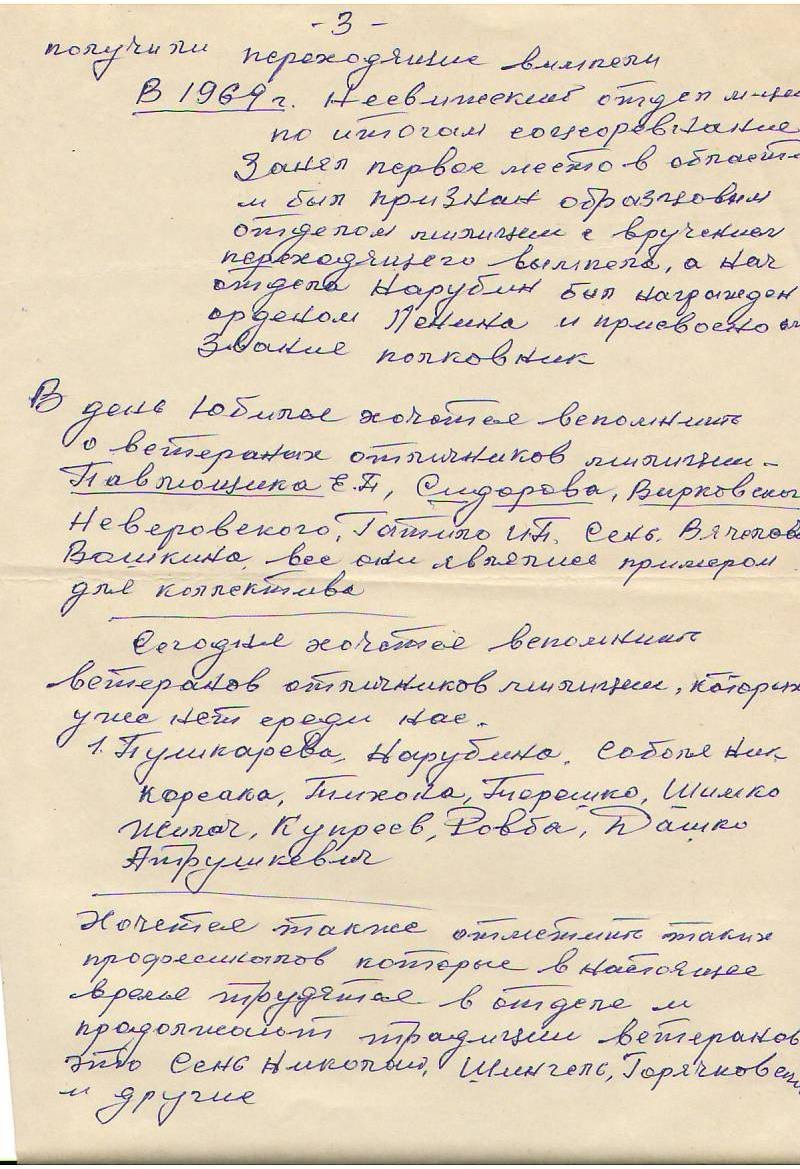 - 3 -
получили переходящие вымпелы
В 1969 г. Несвижский отдел м-ции
по итогам соцсоревнание
Занял первое место в област
и был признан образцовым
отделом милиции с вручением
переходящего вымпела, а нач
отдела Нарубин был награжден
орденом Ленина и присвоено
Звание полковник
В день Юбилея хочется вспомнить
о ветеранах отличников милиции -
Павлющика Е.П, Сидорова, Вирковского
Неверовского, Гатило И.П. Сень. Вячеслава
Вашкина, все они являлись примером
для коллектива
Сегодня хочется вспомнить
ветеранов отличников милиции, которых
уже нет среди нас.
1. Пушкарева, Нарубина, Соболя Ник
Корсака, Тихона, Терешко, Шимко
Жилач, Купреев, Ровба, Дашко
Атрушкевич
Хочется также отметить таких
професионалов которые в настоящее
время трудятся в отделе и
продолжают традиции ветеранов
это Сень Николай, Шингель, Горячковский
и другие